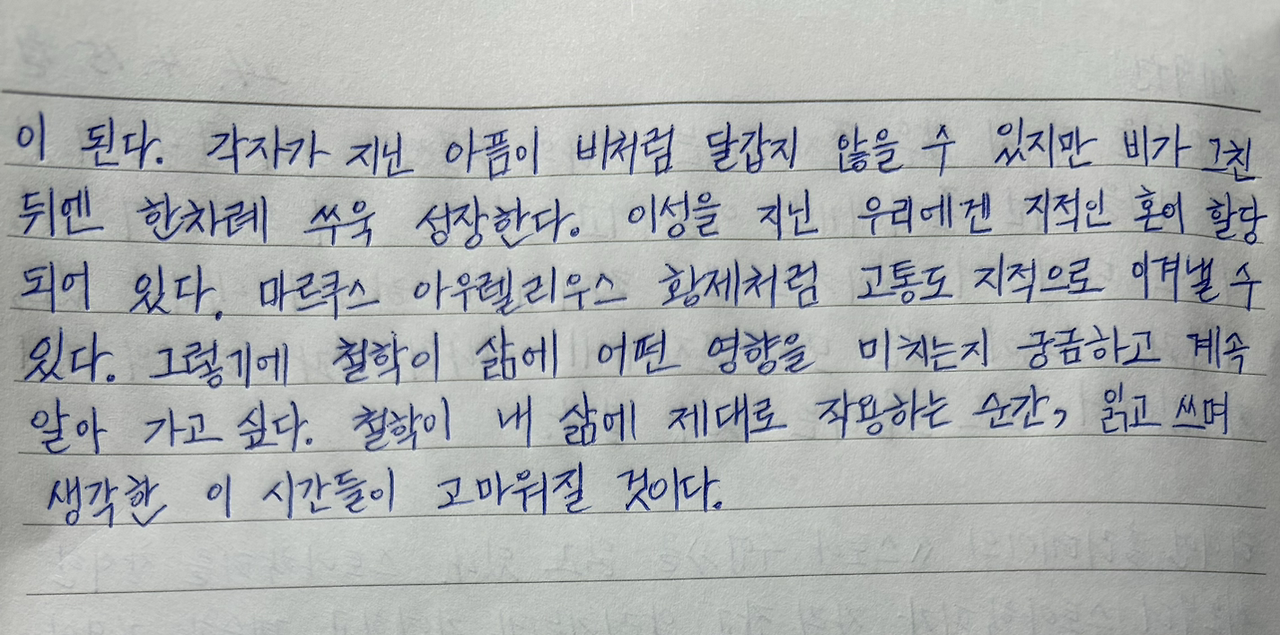 이 된다. 각자가 지닌 아픔이 비처럼 달갑지 않을 수 있지만 비가 그친
뒤엔 한차례 쑤욱 성장한다. 이성을 지닌 우리에겐 지적인 혼이 할당
되어 있다. 마르쿠스 아우렐리우스 황제처럼 고통도 지적으로 이겨낼 수
있다. 그렇기에 철학이 삶에 어떤 영향을 미치는지 궁금하고 계속
알아 가고 싶다. 철학이 내 삶에 제대로 작용하는 순간, 읽고 쓰며
생각한 이 시간들이 고마워질 것이다.